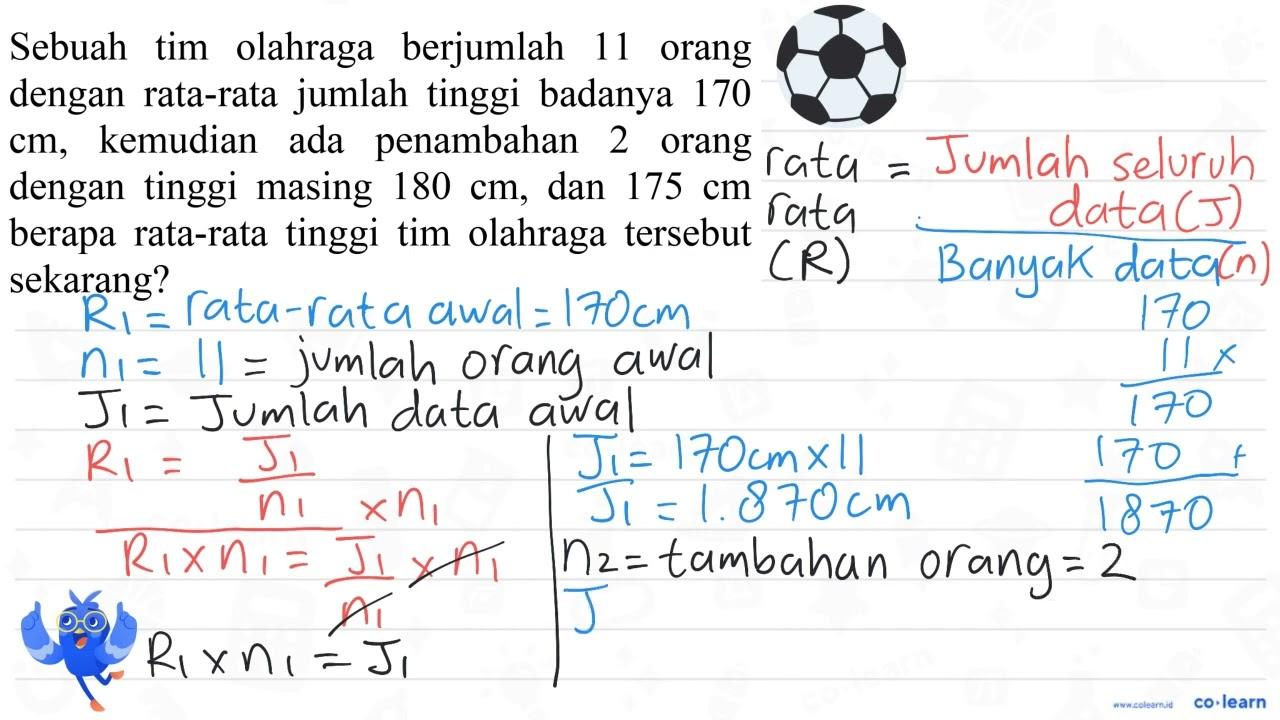 Sebuah tim olahraga berjumlah 11 orang
dengan rata-rata jumlah tinggi badanya 170
cm, kemudian ada penambahan 2 orang
dengan tinggi masing 180 cm, dan 175 cm
berapa rata-rata tinggi tim olahraga tersebut
sekarang?
rata rata (R) = Jumlah seluruh data (J)
Banyak data (n)
R1 = rata-rata awal = 170cm
n1 = 11 = jumlah orang awal
J1 = Jumlah data awal
170
11 x
170
170 +
1870
R1 = J1
n1 × n1
R1 × n1 = J1 × n1
n1
R1 × n1 = J1
J1 = 170cm × 11
J1 = 1.870cm
n2 = tambahan orang = 2
J
www.colearn.id
co·learn